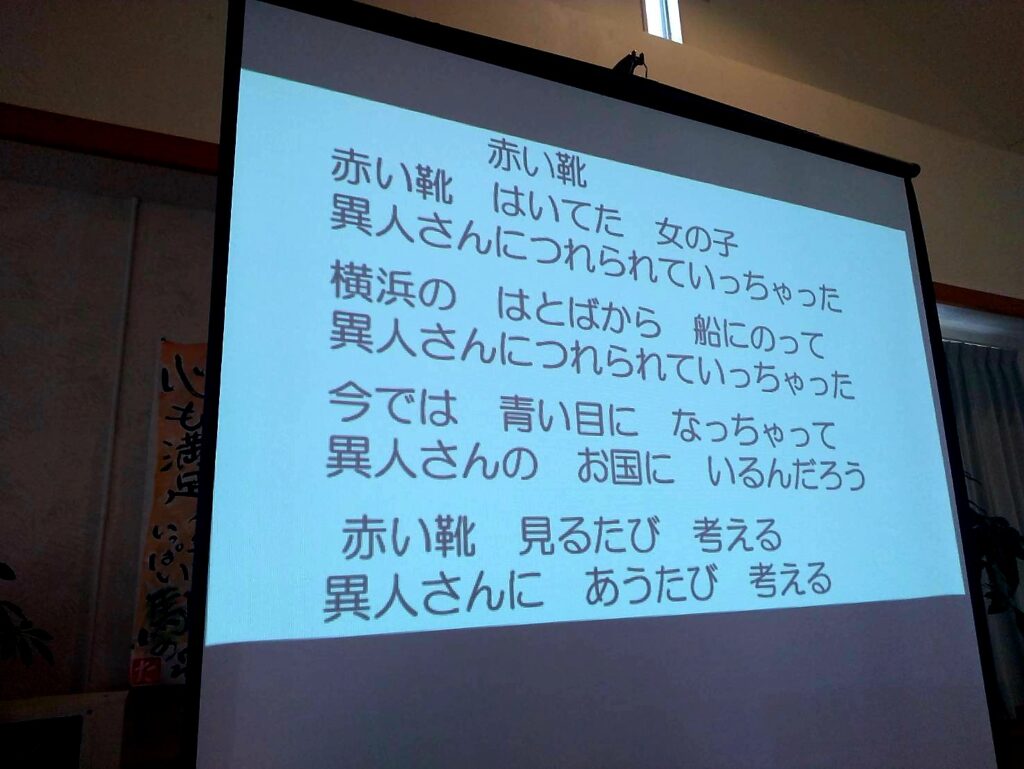 赤い靴
赤い靴　はいてた　女の子
異人さんにつれられていっちゃった
横浜の　はとばから　船にのって
異人さんにつれられていっちゃった
今では　青い目に　なっちゃって
異人さんの　お国に　いるんだろう
赤い靴　見るたび　考える
異人さんに　あうたび　考える
心も満足
いっぱい
た